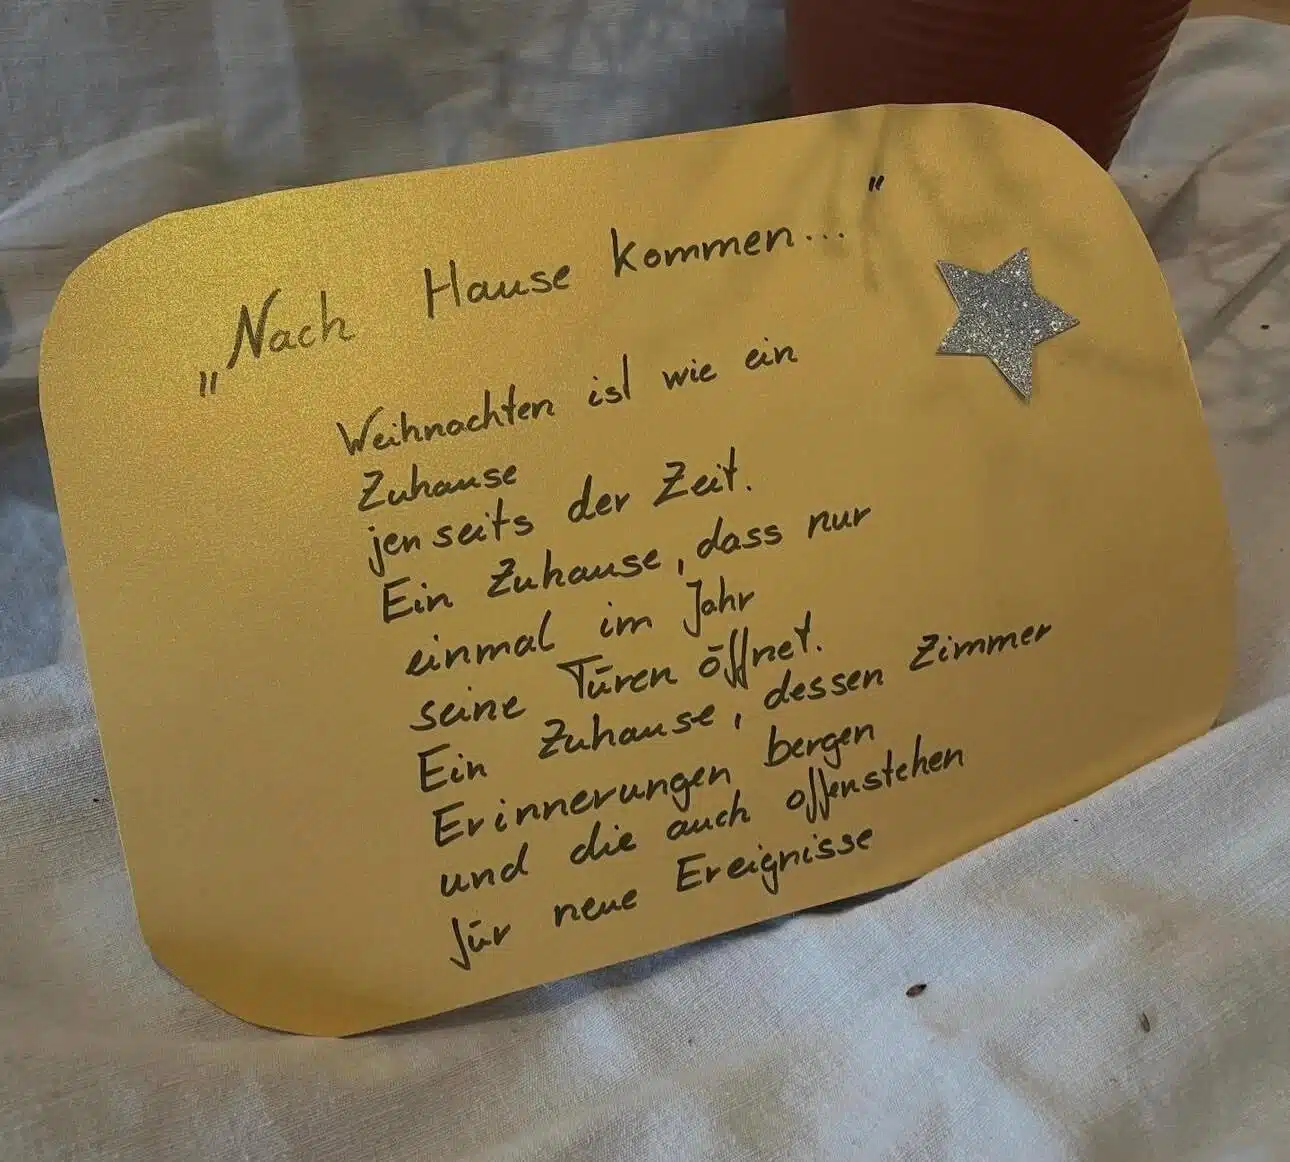 „Nach Hause kommen..."
Weihnachten ist wie ein
Zuhause
jenseits der Zeit.
Ein Zuhause, dass nur
einmal im Jahr
seine Türen öffnet.
Ein Zuhause, dessen Zimmer
Erinnerungen bergen
und die auch offenstehen
für neue Ereignisse